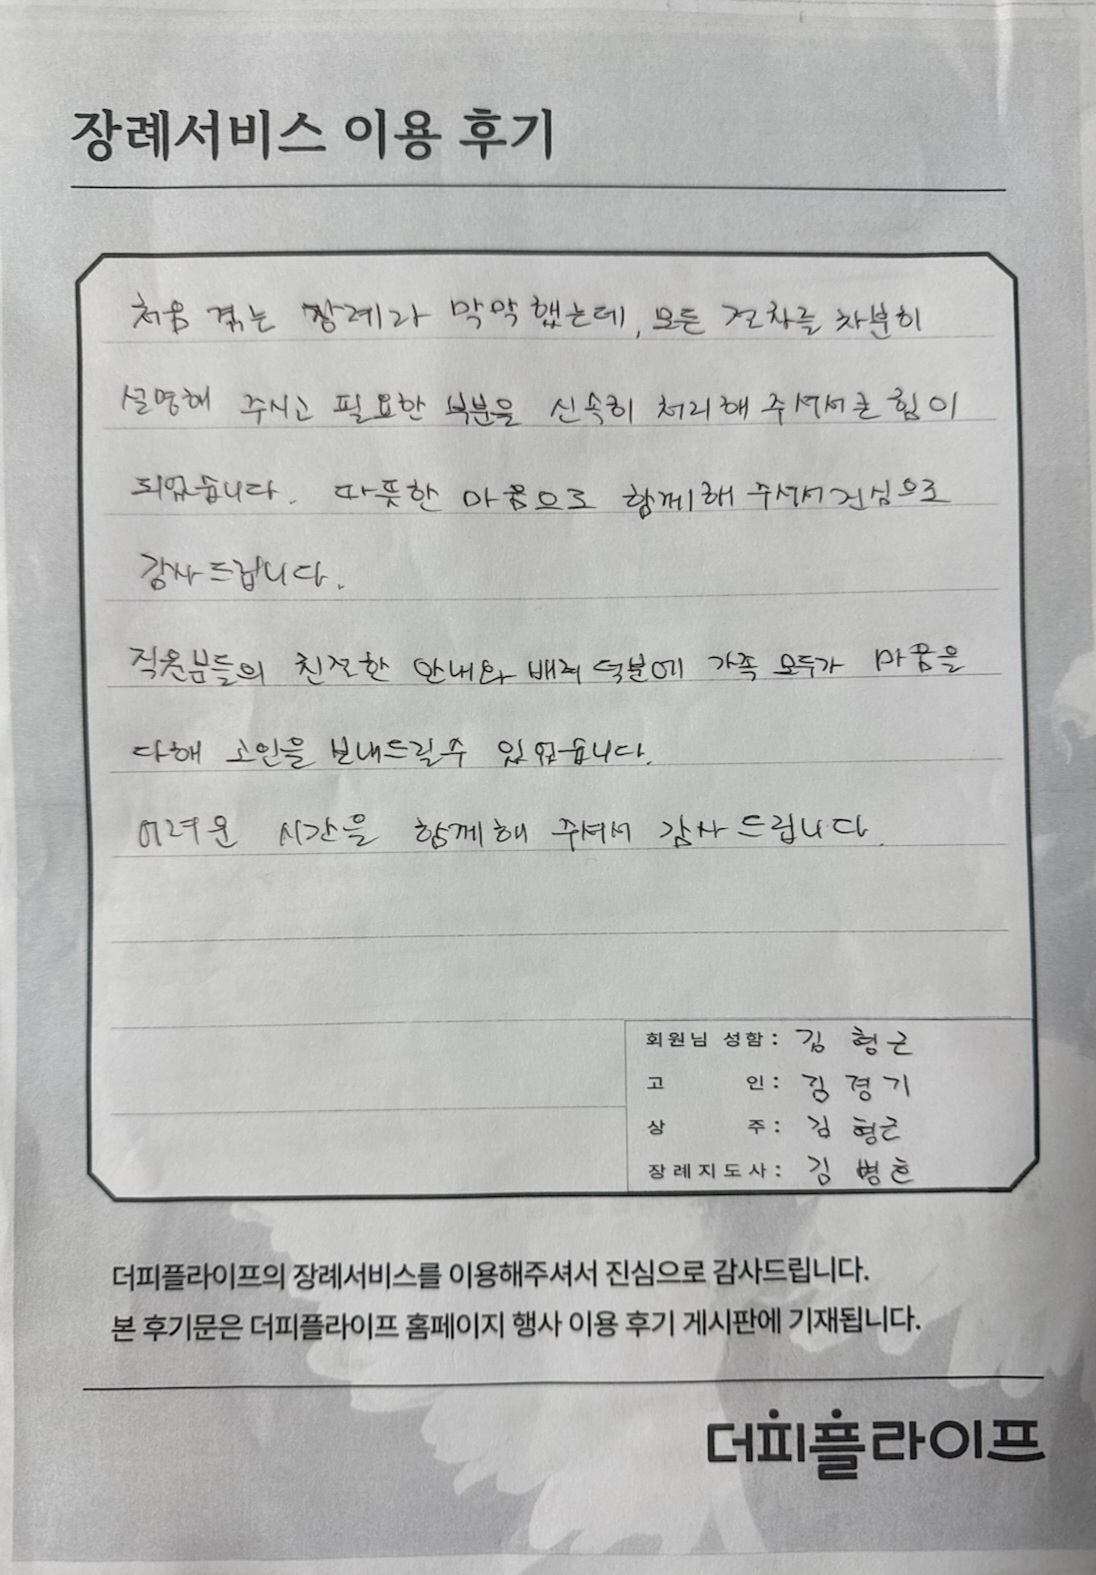 장례서비스 이용 후기
처음 겪는 장례라 막막했는데, 모든 절차를 차분히
설명해 주시고 필요한 부분을 신속히 처리해 주셔서 큰 힘이
되었습니다. 따뜻한 마음으로 함께해 주셔서 진심으로
감사드립니다.
직원분들의 친절한 안내와 배려 덕분에 가족 모두가 마음을
다해 고인을 보내드릴수 있었습니다.
어려운 시간을 함께해 주셔서 감사드립니다.
회원님 성함: 김 형근
고 인: 김 경기
상 주: 김 형근
장례지도사: 김 병흔
더피플라이프의 장례서비스를 이용해주셔서 진심으로 감사드립니다.
본 후기문은 더피플라이프 홈페이지 행사 이용 후기 게시판에 기재됩니다.
더피플라이프